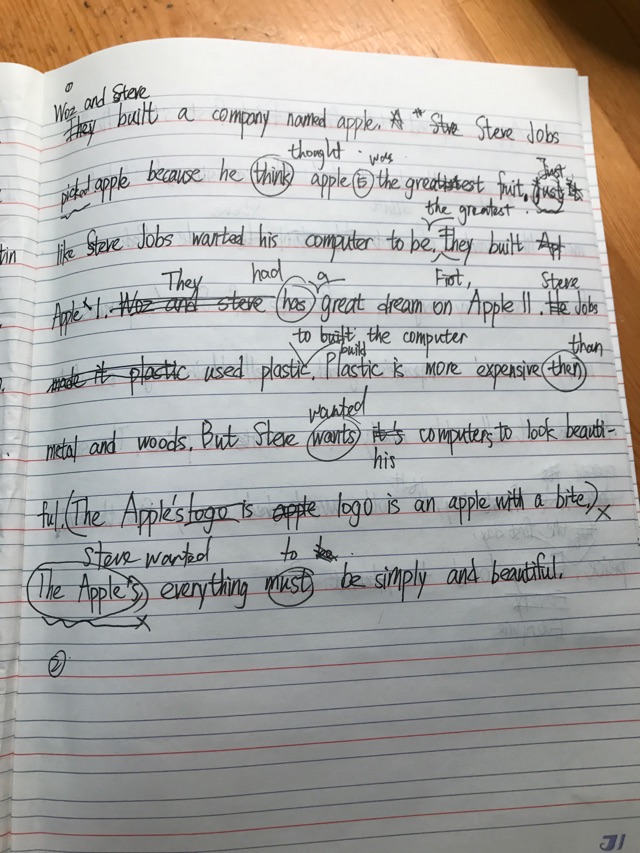 ①
Woz and Steve
They built a company named apple. A * Steve Steve Jobs
thought was Just
picked apple because he think apple is the greatest fruit. Just
the greatest.
like Steve Jobs wanted his computer to be, they built App
They had a First, Steve
Apple 1. Woz and steve has great dream on Apple II. He Jobs
to built the computer
build than
made it plastic used plastic. Plastic is more expensive then
wanted
metal and woods. But Steve wants it's computers to look beauti-
his
ful. (The Apple's logo is apple logo is an apple with a bite.) x
Steve wanted to be
The Apple's everything must be simply and beautiful.
②
tin
J1